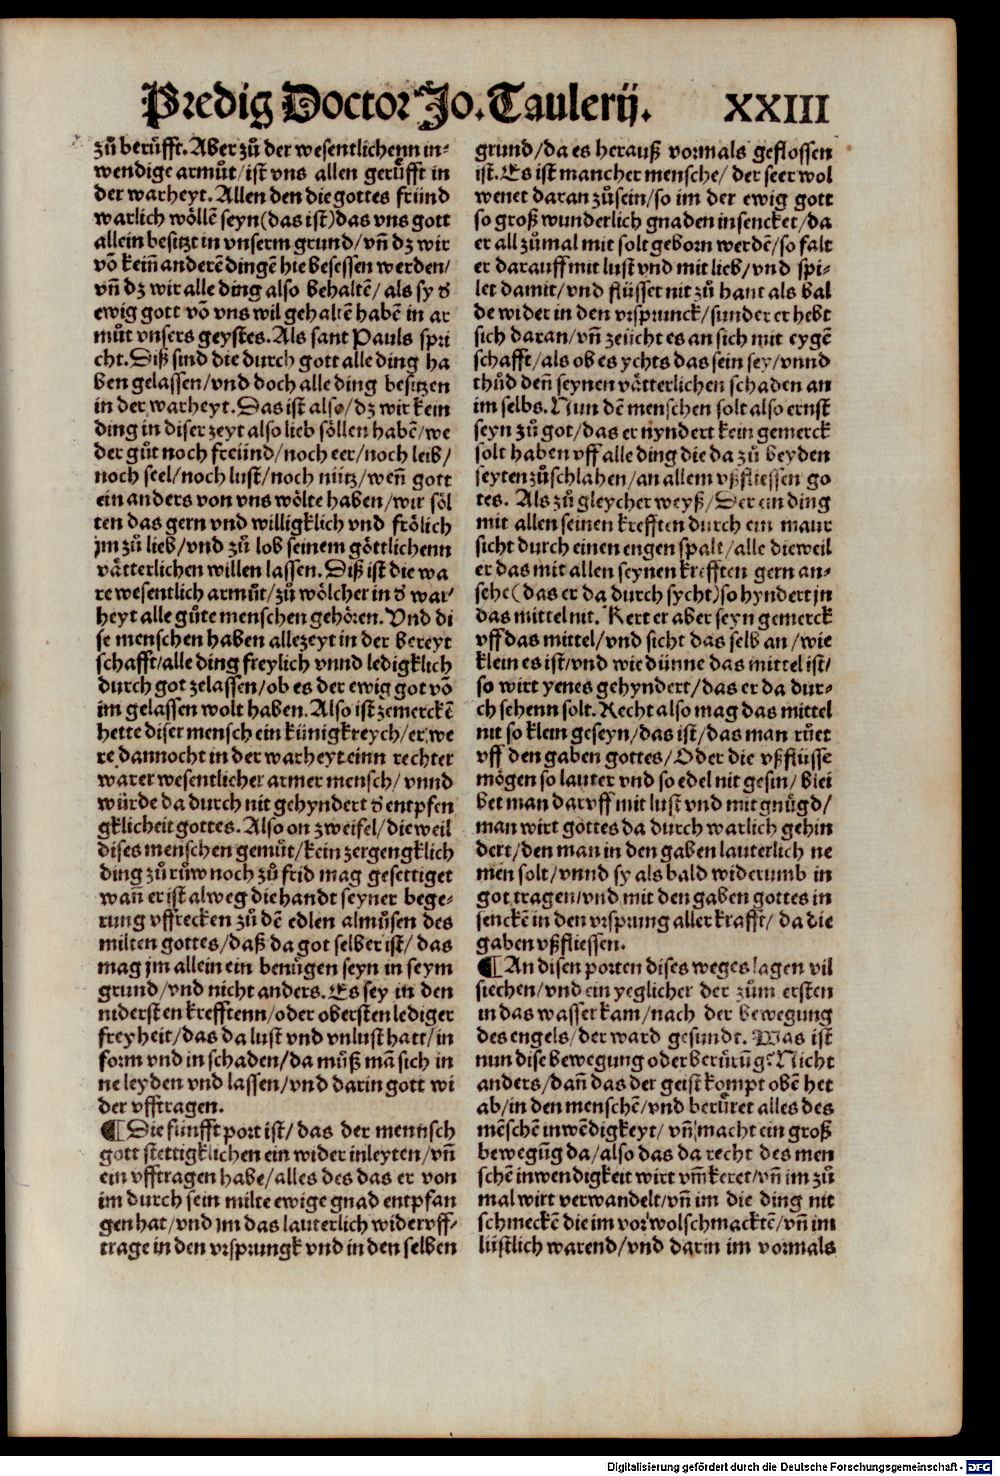 Predig Doctor Jo. Taulerij. XXIII
zů berůfft. Aber zů der wesentlichenn in-
wendige armůt/ ist vns allen gerůfft in
der warheyt. Allen den die gottes fründ
warlich wöllē seyn (das ist) das vns gott
allein besitzt in vnserm grund/ vñ dz wir
vō keiñ anderē dingē hie besessen werden/
vñ dz wir alle ding also behaltē/ als sy d̕
ewig gott vō vns wil gehaltē habē in ar
můt vnsers geystes. Als sant Pauls spri
cht. Diß sind die durch gott alle ding ha
ben gelassen/ vnd doch alle ding besitzen
in der warheyt. Das ist also/ dz wir kein
ding in diser zeyt also lieb söllen habē/ we
der gůt noch freünd/ noch eer/ noch leib/
noch seel/ noch lust/ noch nütz/ weñ gott
ein anders von vns wölte haben/ wir söl
ten das gern vnd willigklich vnd frölich
jm zů lieb/ vnd zů lob seinem göttlichenn
vätterlichen willen lassen. Diß ist die wa
re wesentlich armůt/ zů wölcher in d̕ war-
heyt alle gůte menschen gehören. Vnd di
se menschen haben allezeyt in der bereyt
schafft/ alle ding freylich vnnd ledigklich
durch got zelassen/ ob es der ewig got vō
im gelassen wolt haben. Also ist zemerckē
hette diser mensch ein künigkreych/ er we
re dannocht in der warheyt einn rechter
warer wesentlicher armer mensch/ vnnd
würde da durch nit gehyndert d̕ entpfen
gklicheit gottes. Also on zweifel/ die weil
dises menschen gemüt/ kein zergengklich
ding zů růw noch zů frid mag gesettiget
wañ er ist alweg die handt seyner bege-
rung vffrecken zů dē edlen almůsen des
milten gottes/ daß da got selber ist/ das
mag jm allein ein benügen seyn in seym
grund/ vnd nicht anders. Es sey in den
nidersten krefftenn/ oder obersten lediger
freyheit/ das da lust vnd vnlust hatt/ in
form vnd in schaden/ da můß mā sich in
ne leyden vnd lassen/ vnd darin gott wi
der vfftragen.
¶ Die fünfft port ist/ das der mennsch
gott stettigklichen ein wider inleyten/ vñ
ein vfftragen habe/ alles des das er von
im durch sein milte ewige gnad entpfan
gen hat/ vnd jm das lauterlich widervff-
trage in den vrsprungk vnd in den selben
grund/ da es herauß vormals geflossen
ist. Es ist mancher mensche/ der seer wol
wenet daran zůsein/ so im der ewig gott
so groß wunderlich gnaden insencket/ da
er all zůmal mit solt geborn werdē/ so falt
er darauff mit lust vnd mit lieb/ vnd spi-
let damit/ vnd flüsset nit zů hant als bal
de wider in den vrsprunck/ sunder er hebt
sich daran/ vñ zeücht es an sich mit eygē
schafft/ als ob es ychts das sein sey/ vnnd
thůd deñ seynen vätterlichen schaden an
im selbs. Nun dē menschen solt also ernst
seyn zů got/ das er nyndert kein gemerck
solt haben vff alle ding die da zů beyden
seyten zůschlahen/ an allem vßfliessen go
tes. Als zů gleycher weyß/ Der ein ding
mit allen seinen krefften durch ein maur
sicht durch einen engen spalt/ alle dieweil
er das mit allen seynen krefften gern an-
sehe (das er da durch sycht) so hyndert jn
das mittel nit. Kert er aber seyn gemerck
vff das mittel/ vnd sicht das selb an/ wie
klein es ist/ vnd wie dünne das mittel ist/
so wirt yenes gehyndert/ das er da dur-
ch sehenn solt. Recht also mag das mittel
nit so klein geseyn/ das ist/ das man růet
vff den gaben gottes/ Oder die vßflüsse
mögen so lauter vnd so edel nit gesin/ blei
bet man daruff mit lust vnd mit gnůgd/
man wirt gottes da durch warlich gehin
dert/ den man in den gaben lauterlich ne
men solt/ vnnd sy als bald widerumb in
got tragen/ vnd mit den gaben gottes in
senckē in den vrsprung aller krafft/ da die
gaben vßfliessen.
¶ An disen porten dises weges lagen vil
siechen/ vnd ein yeglicher der zům ersten
in das wasser kam/ nach der bewegung
des engels/ der ward gesundt. Was ist
nun dise bewegung oder berürūg? Nicht
anders/ dañ das der geist kompt obē her
ab/ in den menschē/ vnd berüret alles des
mēschē inwēdigkeyt/ vñ macht ein groß
bewegūg da/ also das da recht des men
schē inwendigkeit wirt vm̄keret/ vñ im zů
mal wirt verwandelt/ vñ im die ding nit
schmeckē die im vor wolschmacktē/ vñ im
lüstlich warend/ vnd darin im vormals
Digitalisierung gefördert durch die Deutsche Forschungsgemeinschaft - DFG